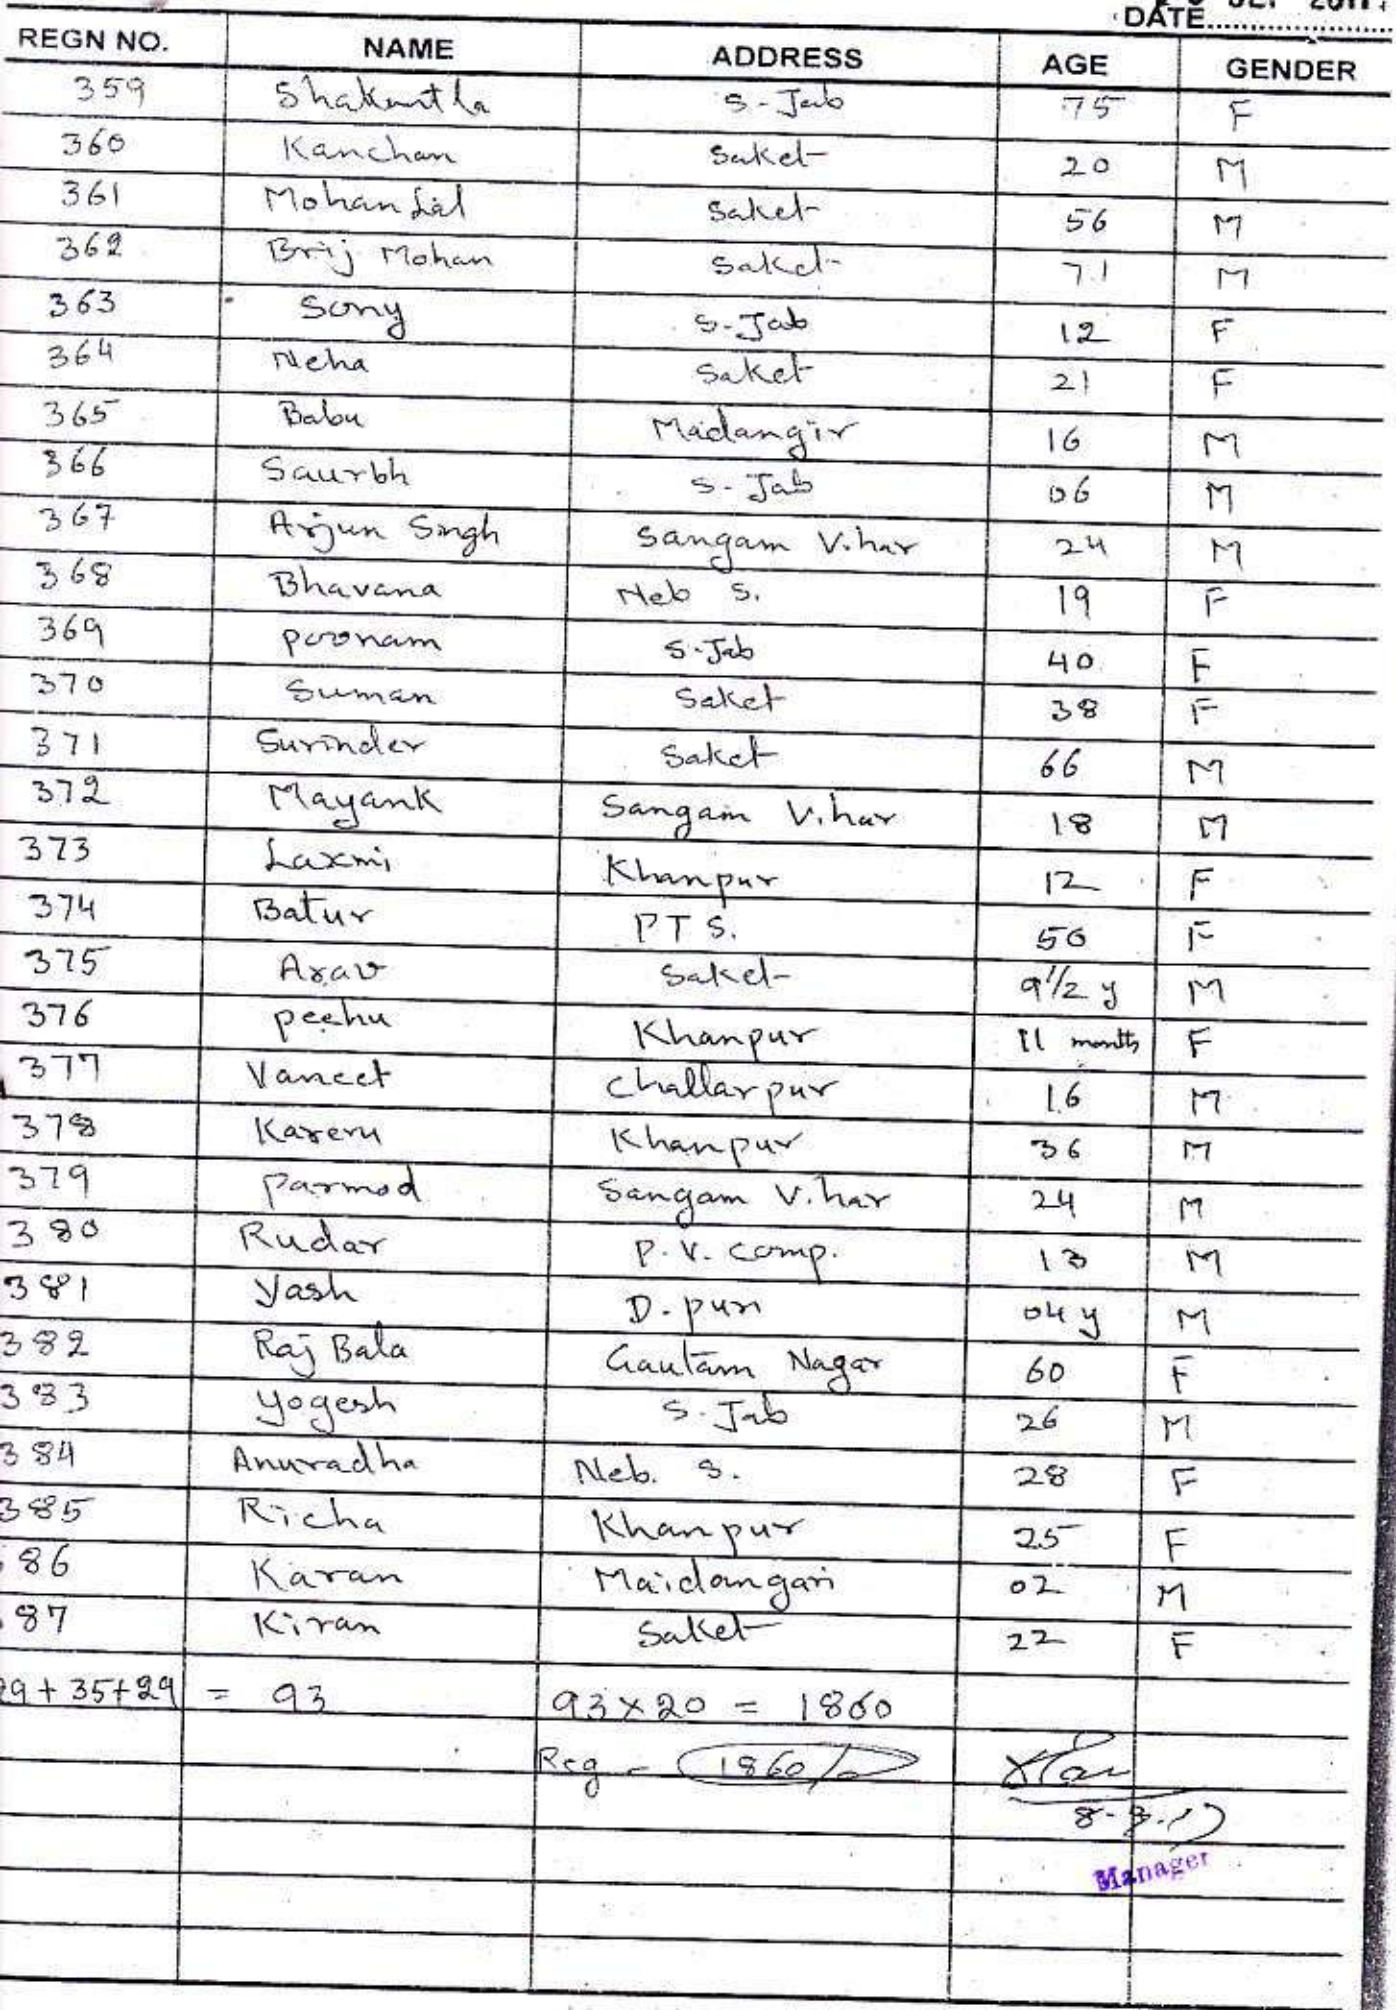 DATE
REGN NO. NAME ADDRESS AGE GENDER
359 Shakuntla S-Jab 75 F
360 Kanchan Saket 20 M
361 Mohan Lal Saket 56 M
362 Brij Mohan Saket 71 M
363 Sony S-Jab 12 F
364 Neha Saket 21 F
365 Babu Madangir 16 M
366 Saurbh S-Jab 06 M
367 Arjun Singh Sangam Vihar 24 M
368 Bhavana Neb S. 19 F
369 poonam S-Jab 40 F
370 Suman Saket 38 F
371 Surinder Saket 66 M
372 Mayank Sangam Vihar 18 M
373 Laxmi Khanpur 12 F
374 Batur PTS. 50 F
375 Arav Saket 9 1/2 y M
376 peehu Khanpur 11 months F
377 Vaneet Challarpur 16 M
378 Khanpur 36 M
379 parmod Sangam Vihar 24 M
380 Rudar P.V. comp. 13 M
381 Yash D.puri 04 y M
382 Raj Bala Gautam Nagar 60 F
383 Yogesh S.Jab 26 M
384 Anuradha Neb. S. 28 F
385 Richa Khanpur 25 F
86 Karan Maidangari 02 M
87 Kiran Saket 22 F
29+35+29 = 93 93×20 = 1860
Reg - 1860/-
Manager